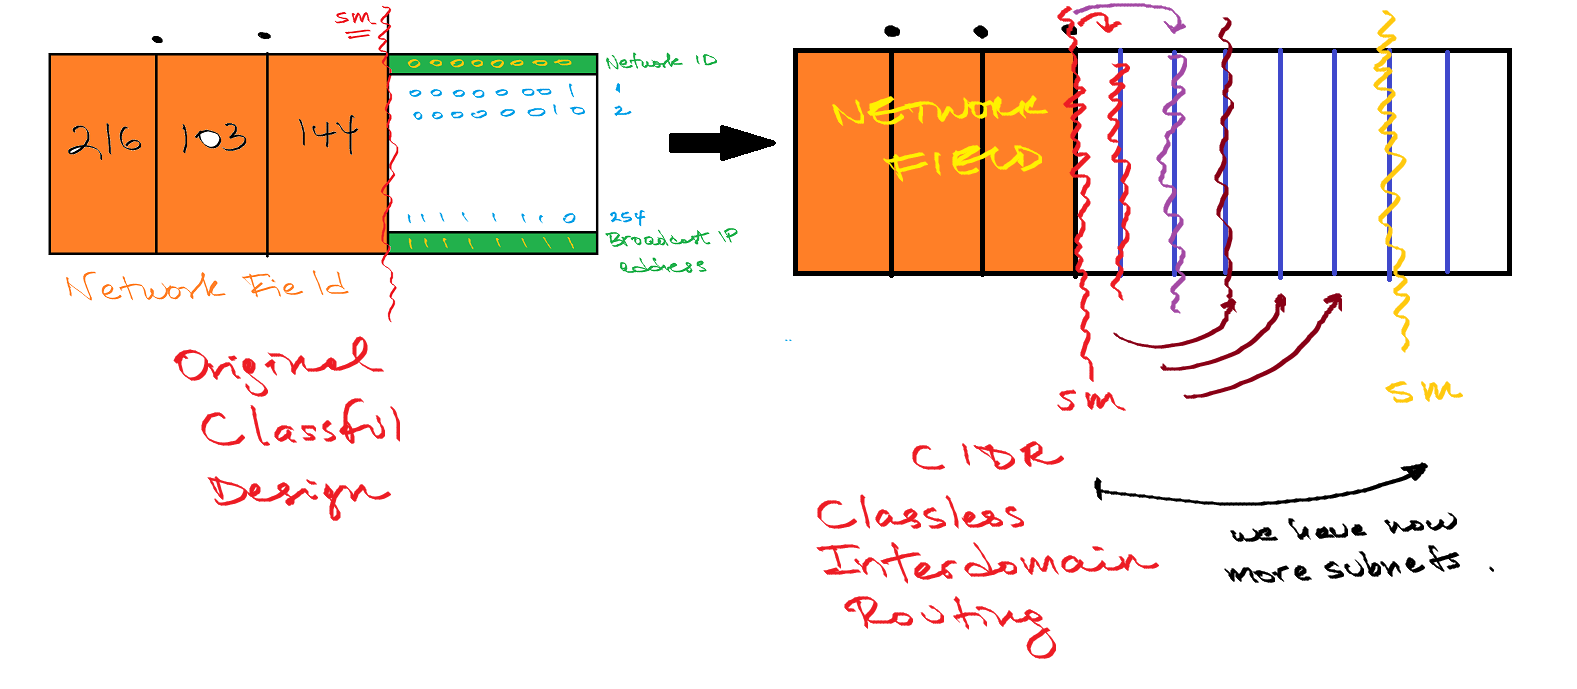 sm
216 103 144
0 0 0 0 0 0 0 0 Network ID
0 0 0 0 0 0 0 1 1
0 0 0 0 0 0 1 0 2
1 1 1 1 1 1 1 0 254
1 1 1 1 1 1 1 1 Broadcast IP
address
Network Field
Original
Classful
Design
NETWORK
FIELD
sm
sm
CIDR
Classless
Interdomain
Routing
we have now
more subnets.